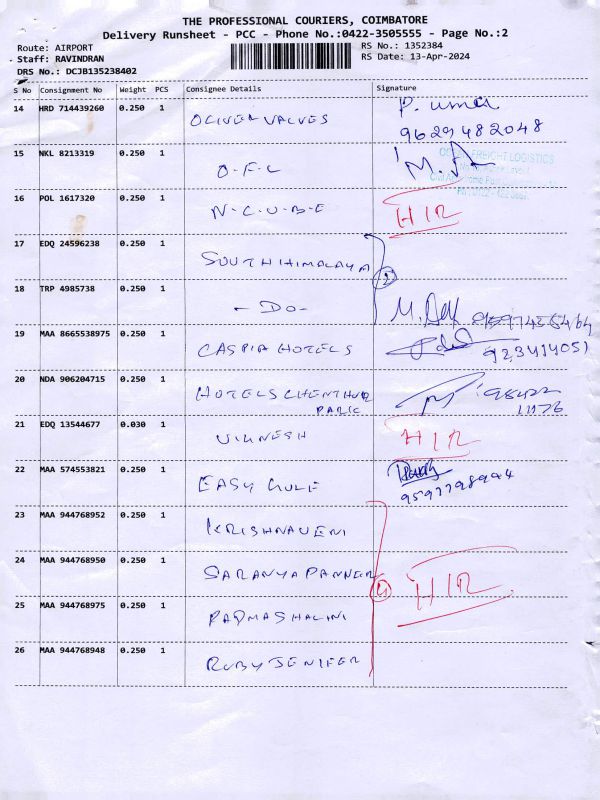 THE PROFESSIONAL COURIERS, COIMBATORE
Delivery Runsheet - PCC - Phone No.:0422-3505555 - Page No.:2
Route: AIRPORT
Staff: RAVINDRAN
DRS No.: DCJB135238402
RS No.: 1352384
RS Date: 13-Apr-2024
S No Consignment No Weight PCS Consignee Details Signature
14 HRD 714439260 0.250 1 OLIVER VALVES P. uma
9629482048
15 NKL 8213319 0.250 1 O-F-L
FREIGHT LOGISTICS
16 POL 1617320 0.250 1 N-C-U-B-E HIR
17 EDQ 24596238 0.250 1 SOUTH HIMALAYA 2
18 TRP 4985738 0.250 1 - DO -
19 MAA 8665538975 0.250 1 CASPIA HOTELS
20 NDA 906204715 0.250 1 HOTELS CHENTHUR
PARK
21 EDQ 13544677 0.030 1 VIKNESH HIR
22 MAA 574553821 0.250 1 EASY GULF
23 MAA 944768952 0.250 1 KRISHNAVENI
24 MAA 944768950 0.250 1 SARANYA PANNER 4 HIR
25 MAA 944768975 0.250 1 PADMASHALINI
26 MAA 944768948 0.250 1 RUBY JENIFER